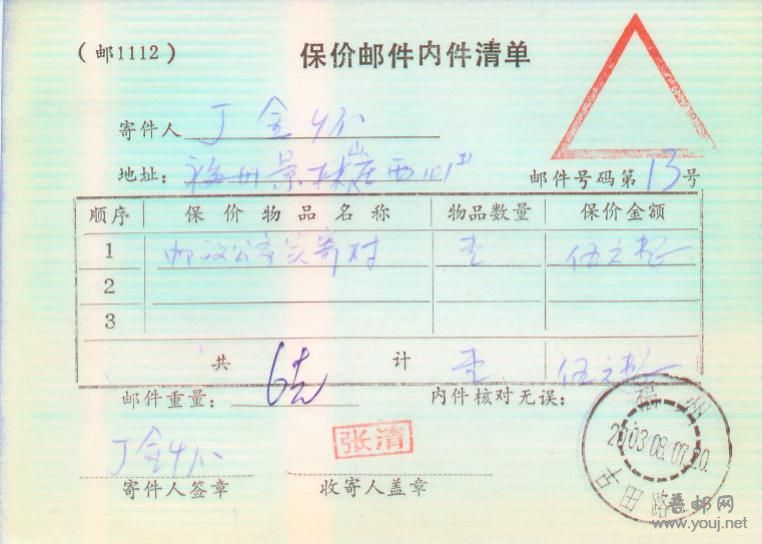 （邮1112） 保价邮件内件清单
寄件人 丁金
地址： 福州景 西 邮件号码第 13 号
顺序 保价物品名称 物品数量 保价金额
1 邮政公事实寄封 壹 伍元整
2
3
共 计 壹 伍元整
邮件重量： 6克 内件核对无误：
丁金 张清
寄件人签章 收寄人盖章
福州
2003.08.07.20.
古田路
吾邮网
www.youj.net